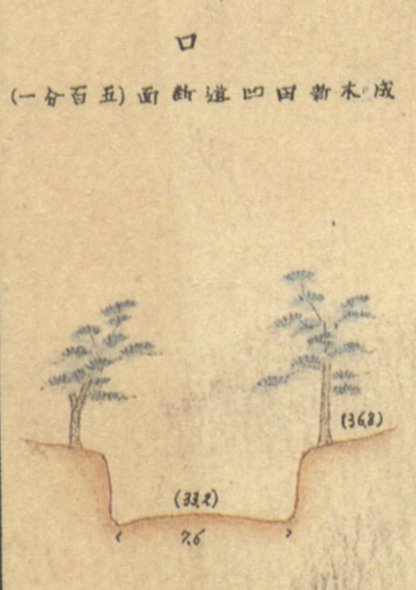 ロ
成木新田凹道断面(五百分一)
(36.8)
(33.2)
7.6